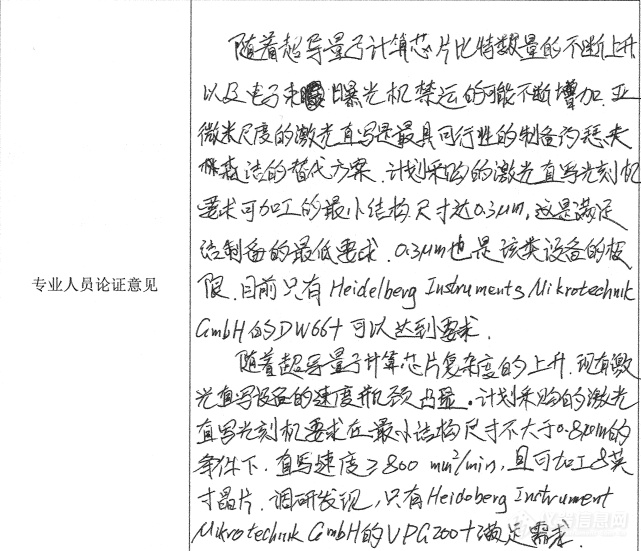 专业人员论证意见
随着超导量子计算芯片比特数量的不断上升
以及电子束曝光机禁运的可能不断增加,亚
微米尺度的激光直写是最具可行性的制备约瑟夫
森结的替代方案.计划采购的激光直写光刻机
要求可加工的最小结构尺寸达0.3μm,这是满足
结制备的最低要求.0.3μm也是该类设备的极
限.目前只有Heidelberg Instruments Mikrotechnik
GmbH的DW66+可以达到要求.
随着超导量子计算芯片复杂度的上升.现有激
光直写设备的速度瓶颈凸显.计划采购的激光
直写光刻机要求在最小结构尺寸不大于0.8μm的
条件下.直写速度≥800 mm²/min,且可加工8英
寸晶片.调研发现,只有Heidoberg Instrument
Mikrotechnik GmbH的VPG200+满足需求.
仪器信息网